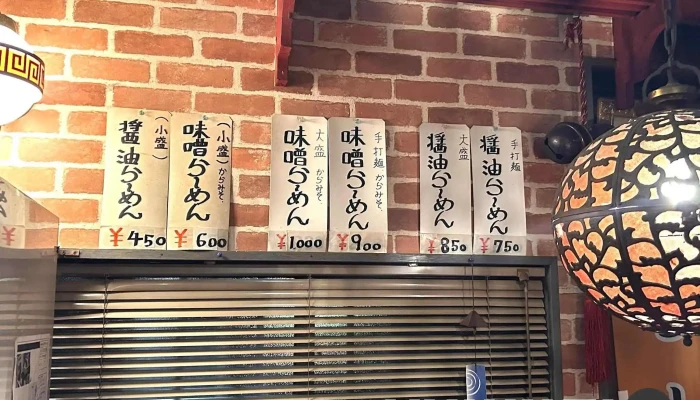 手打麺
醤油らーめん
¥750
大盛
醤油らーめん
¥850
手打麺 からみそ
味噌らーめん
¥900
大盛 からみそ
味噌らーめん
¥1000
(小盛) からみそ
味噌らーめん
¥600
(小盛)
醤油らーめん
¥450